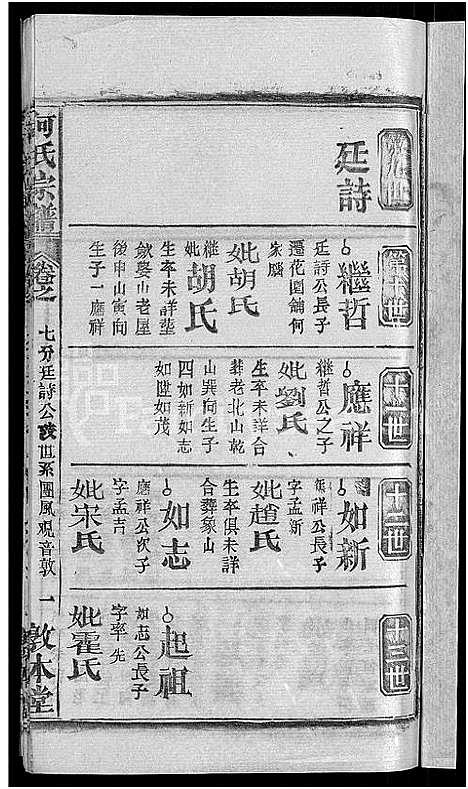 廷詩
繼哲
廷詩公長子
遷花園鋪何
家腦
妣胡氏
繼妣胡氏
生卒未詳塟
歛婺山老屋
後申山寅向
生子一應祥
十一世
應祥
繼哲公之子
妣劉氏
生卒未詳合
葬老北山乾
山巽向生子
四如新如志
如陞如茂
十二世
如新
應祥公長子
字孟新
妣趙氏
生卒俱未詳
合葬象山
如志
應祥公次子
字孟吉
妣宋氏
十三世
起祖
如志公長子
字率先
妣霍氏
何氏宗譜
卷之
七分廷詩公
世系團風观音敦
一
敦本堂